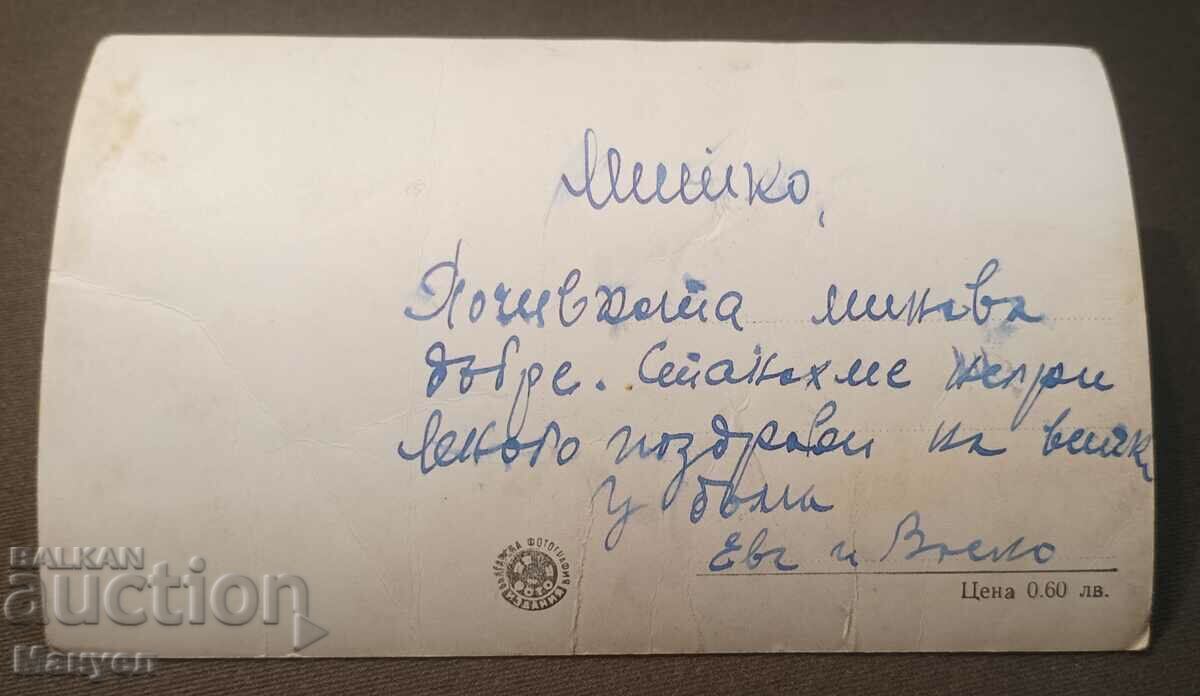 Мишко,
Почивката минава
добре. Станахме
много поздрави на всички
у дома
Евг и Весело
БЪЛГАРСКА ФОТОГРАФИЯ
ИЗДАНИЯ
Цена 0.60 лв.
BALKAN
auction
Мануел